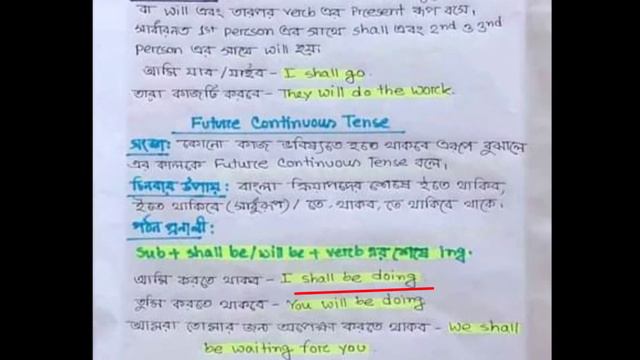 বা will এবং তারপর verb এর Present রূপ বসে।
সাধারনত 1st person এর সাথে shall এবং 2nd ও 3nd
person এর সাথে will হয়।
আমি যাব / যাইব - I shall go.
তারা কাজটি করবে - They will do the work.
Future Continuous Tense
সংজ্ঞা: কোনো কাজ ভবিষ্যতে হতে থাকবে এরূপ বুঝালে
এর কালকে Future Continuous Tense বলে।
চিনবার উপায়: বাংলা ক্রিয়াপদের শেষে ইতে থাকিব,
ইতে থাকিবে (সাধুরূপ) / তে থাকব, তে থাকিবে থাকে।
গঠন প্রনালী:
Sub + shall be/will be + verb এর শেষে ing.
আমি করতে থাকব - I shall be doing
তুমি করতে থাকবে - You will be doing
আমরা তোমার জন্য অপেক্ষা করতে থাকব - We shall
be waiting fore you.